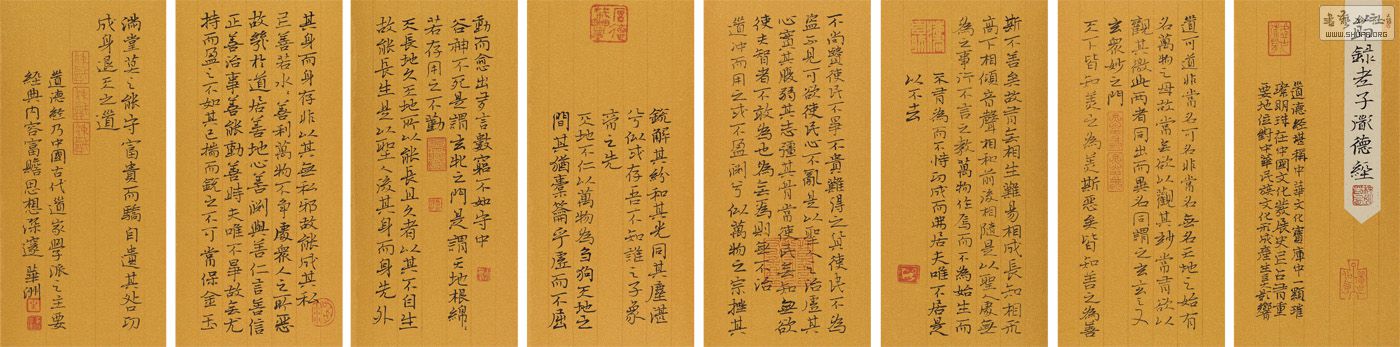 www.shufa.org
錄老子道德經
道德經堪稱中華文化寶庫中一顆璀
璨明珠在中國文化發展史上占有重
要地位對中華民族文化形成產生巨影響
道可道非常名可名非常名無名天地之始有
名萬物之母故常無欲以觀其妙常有欲以
觀其徼此兩者同出而異名同謂之玄玄之又
玄衆妙之門
天下皆知美之為美斯惡矣皆知善之為善
斯不善矣故有無相生難易相成長短相形
高下相傾音聲相和前後相隨是以聖人處無
為之事行不言之教萬物作焉而不為始生而
不有為而不恃功成而弗居夫唯不居是
以不去
不尚賢使民不爭不貴難得之貨使民不為
盜不見可欲使民心不亂是以聖人之治虛其
心實其腹弱其志強其骨常使民無知無欲
使夫智者不敢為也為無為則無不治
道沖而用之或不盈淵兮似萬物之宗挫其
銳解其紛和其光同其塵湛
兮似或存吾不知誰之子象
帝之先
天地不仁以萬物為芻狗天地之
間其猶橐籥乎虛而不屈
動而愈出多言數窮不如守中
谷神不死是謂玄牝之門是謂天地根綿綿
若存用之不勤
天長地久天地所以能長且久者以其不自生
故能長生是以聖人後其身而身先外
其身而身存非以其無私邪故能成其私
上善若水水善利萬物不爭處衆人之所惡
故幾於道居善地心善淵與善仁言善信
正善治事善能動善時夫唯不爭故無尤
持而盈之不如其已揣而銳之不可常保金玉
滿堂莫之能守富貴而驕自遺其咎功
成身退天之道
道德經乃中國古代道家學派之主要
經典內容富贍思想深邃 華洲